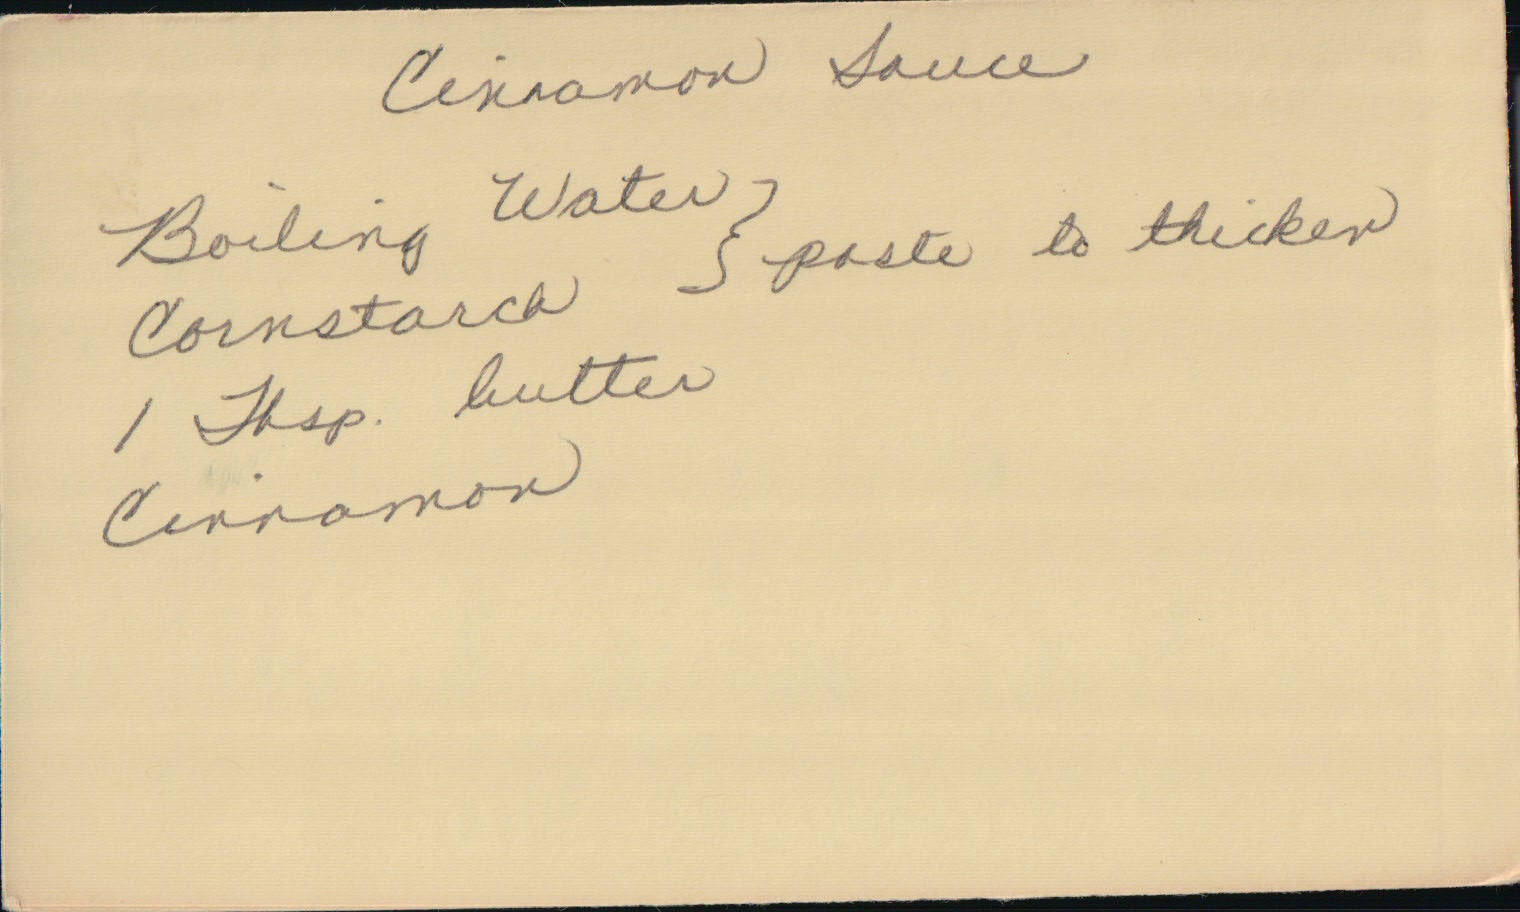 Cinnamon Sauce
Boiling Water
Cornstarch } paste to thicken
1 Tbsp. butter
Cinnamon